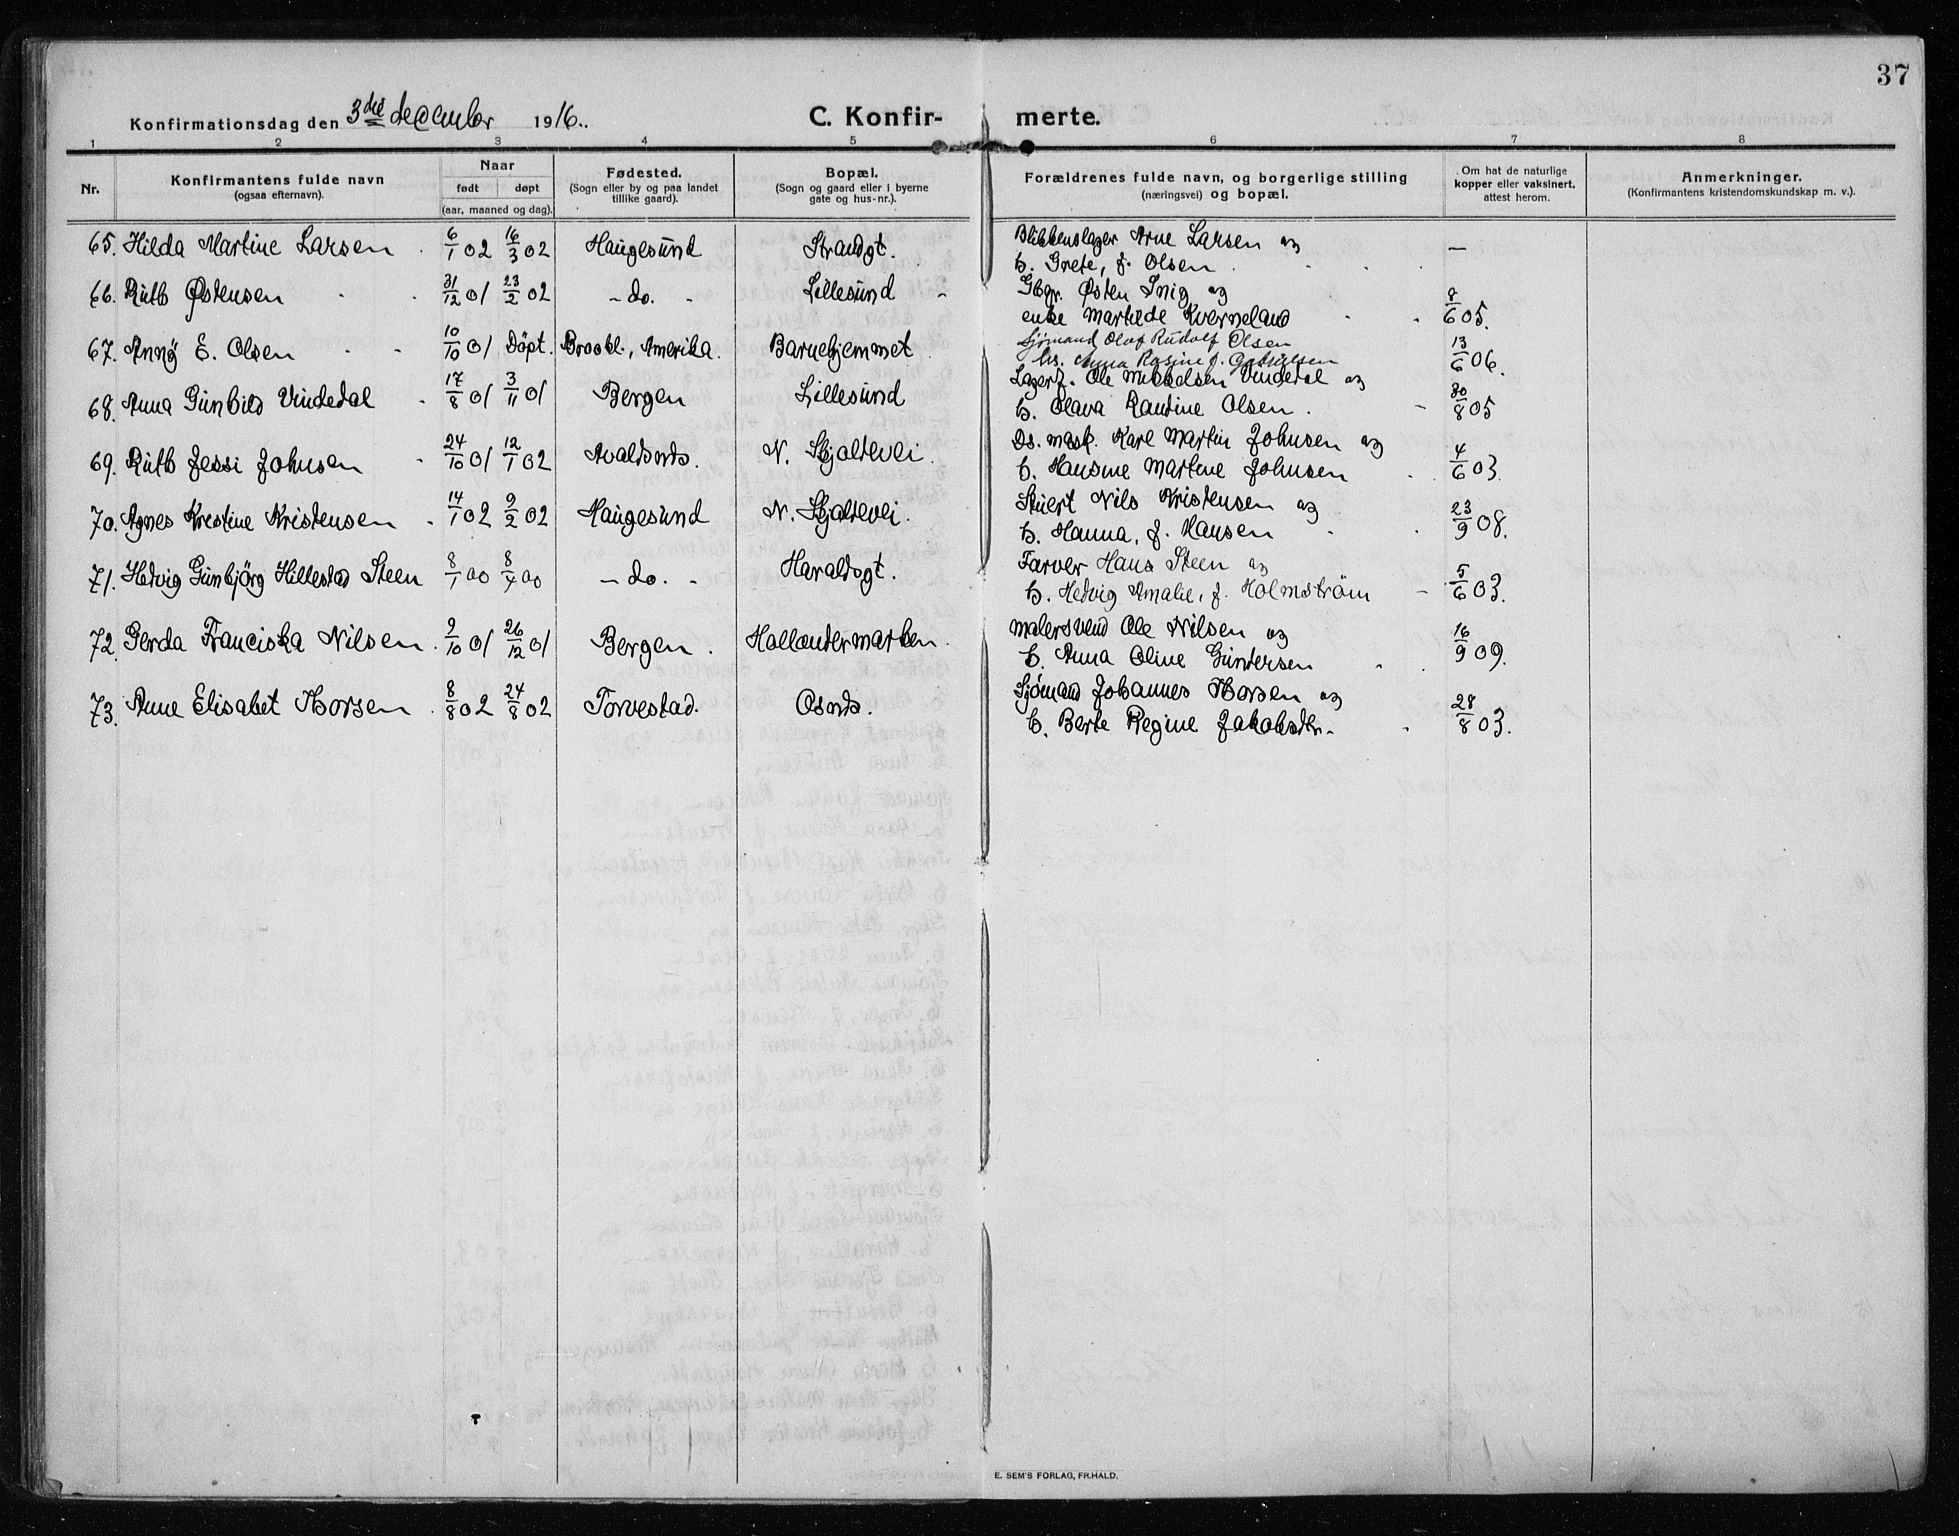 37
Konfirmationsdag den 3die december 1916.
C. Konfir- merte.
1 2 3 4 5 6 7 8
Nr.
Konfirmantens fulde navn
(ogsaa efternavn).
Naar
født døpt
(aar, maaned og dag).
Fødested.
(Sogn eller by og paa landet
tillike gaard).
Bopæl.
(Sogn og gaard eller i byerne
gate og hus-nr.).
Forældrenes fulde navn, og borgerlige stilling
(næringsvei) og bopæl.
Om hat de naturlige
kopper eller vaksinert,
attest herom.
Anmerkninger.
(Konfirmantens kristendomskundskap m. v.).
65. Hilda Martine Larsen 6/1 02 16/3 02 Haugesund Strandgt. Blikkenslager Arne Larsen og —
h. Grete, f. Olsen
66. Ruth Østensen 31/12 01 23/2 02 - do. - Lillesund Gbgr. Østen Snig og
enke Martede Kverneland 8/6 05.
67. Anny E. Olsen 10/10 01 Døpt. Brookl., Amerika. Barnehjemmet Sjømand Olaf Rudolf Olsen 13/6 06.
hs. Anna Rasine f. Gabrielsen
68. Anna Gunhild Vindedal 17/8 01 3/11 01 Bergen Lillesund Lagerf. Ole Mikkelsen Vindedal og
h. Olava Randine Olsen 30/8 05
69. Ruth Jessi Johnsen 24/10 01 12/1 02 Avaldsnds. N. Skjoldevei. Ds. mask. Kare Martin Johnsen og
h. Hansine Martene Johnsen 4/6 03.
70. Agnes Krestine Kristensen 14/1 02 9/2 02 Haugesund N. Skjoldevei. Stuert Nils Kristensen og
h. Hanna, f. Hansen 23/9 08.
71. Hedvig Gunbjörg Hillestad Steen 8/1 00 8/4 00 - do. - Haraldsgt. Farver Hans Steen og
h. Hedvig Amalie, f. Holmström 5/6 03.
72. Gerda Franciska Nilsen 9/10 01 26/12 01 Bergen Hollendermarken. Malersvend Ole Nilsen og
h. Anna Oline Gundersen 16/9 09.
73. Anne Elisabet Thorsen 8/8 02 24/8 02 Torvestad. Osnds. Sjømand Johannes Thorsen og
h. Berte Regine Jakobsdtr. 28/8 03.
E. SEM'S FORLAG, FR.HALD.